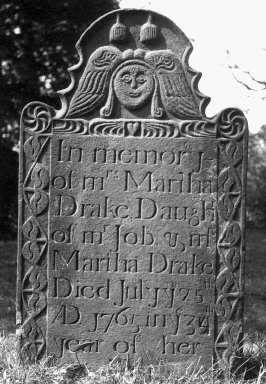 In memory
of mrs Martha
Drake Daughr
of mr Job &
Martha Drake
Died July
AD 1765 in
year of her